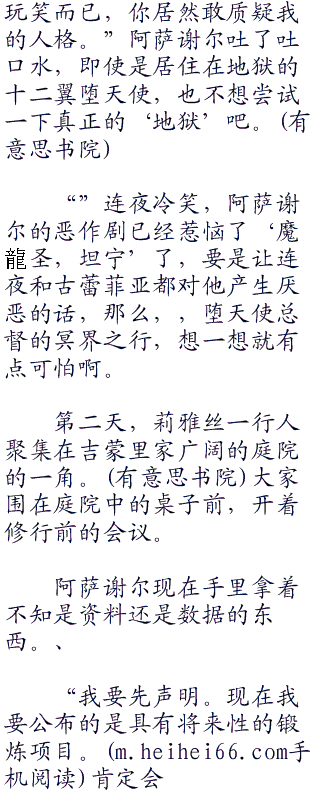 玩笑而已，你居然敢质疑我
的人格。”阿萨谢尔吐了吐
口水，即使是居住在地狱的
十二翼堕天使，也不想尝试
一下真正的‘地狱’吧。(有
意思书院)
“”连夜冷笑，阿萨谢
尔的恶作剧已经惹恼了‘魔
龍圣，坦宁’了，要是让连
夜和古蕾菲亚都对他产生厌
恶的话，那么，，堕天使总
督的冥界之行，想一想就有
点可怕啊。
第二天，莉雅丝一行人
聚集在吉蒙里家广阔的庭院
的一角。(有意思书院)大家
围在庭院中的桌子前，开着
修行前的会议。
阿萨谢尔现在手里拿着
不知是资料还是数据的东
西。、
“我要先声明。现在我
要公布的是具有将来性的锻
炼项目。(m.heihei66.com手
机阅读)肯定会